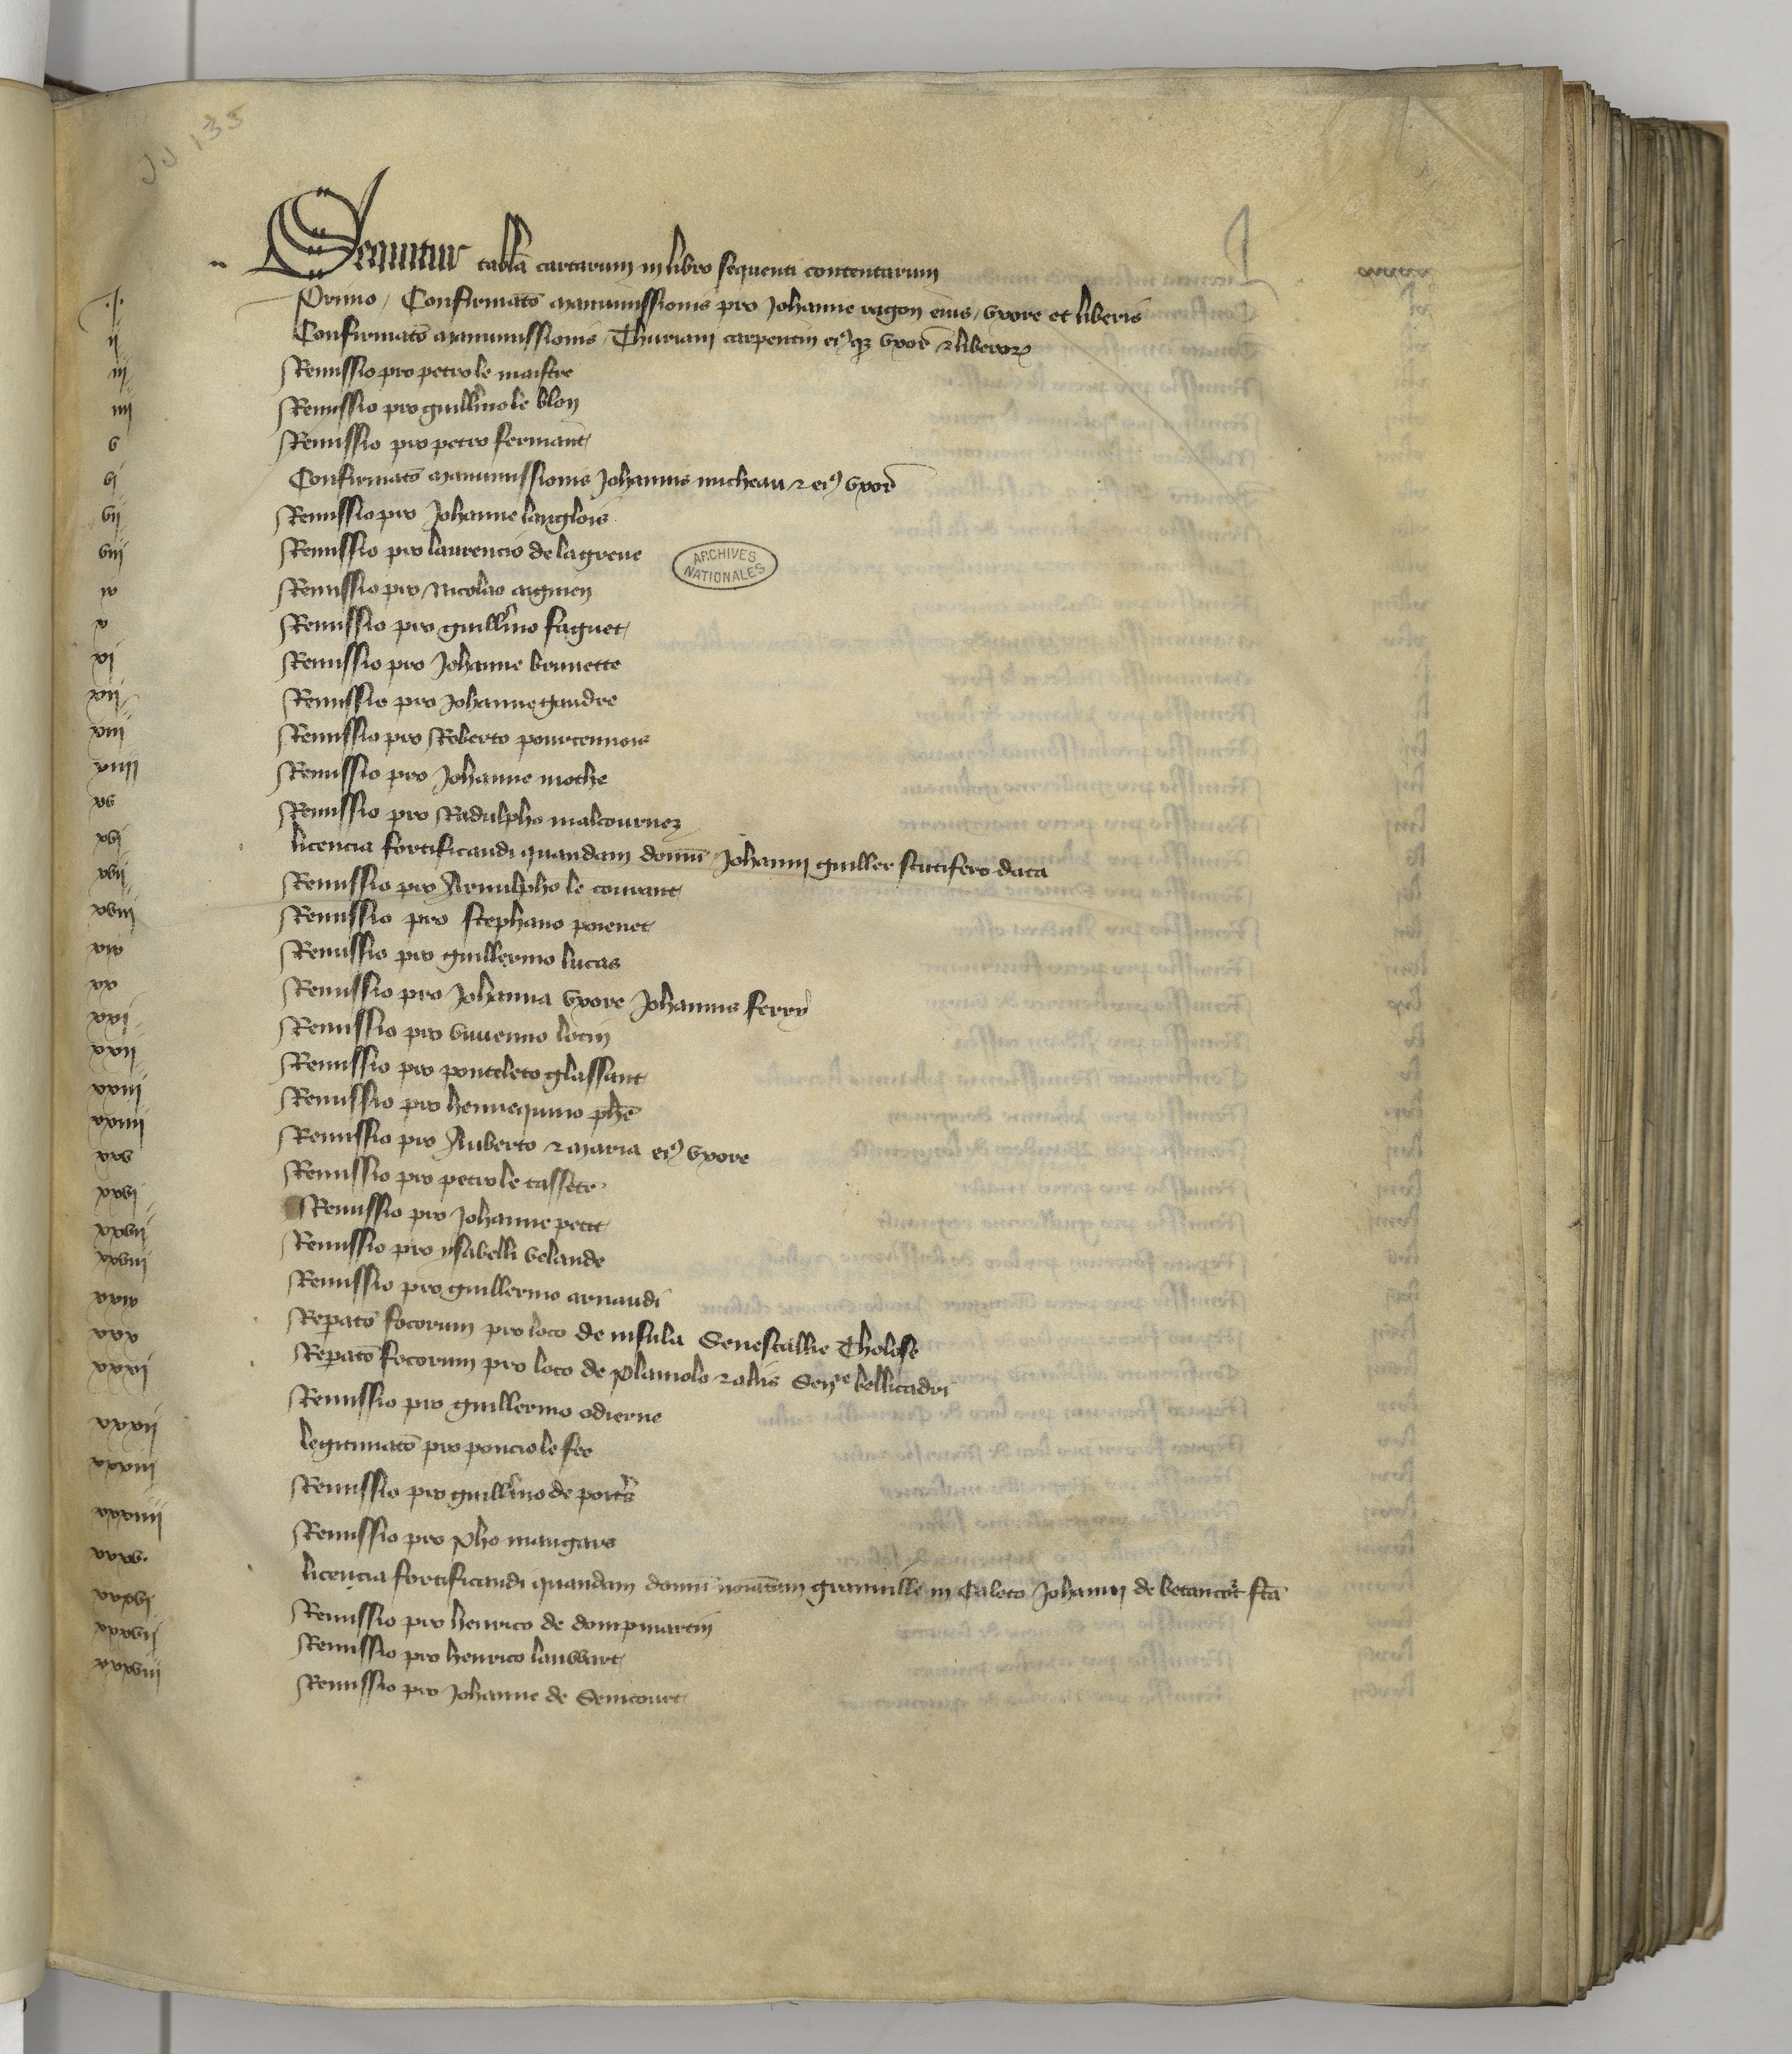 JJ 135
Sequitur tabla cartarum in libro sequenti contentarum
.i. Primo, Confirmato manumissionis pro Johanne ragon eius uxore et liberis
ii Confirmato manumissionis Thuriani carpentin uxor liberor
iii Remissio pro petro le maistre
iiii Remissio pro guillmo le blon
v Remissio pro petro fermant
vi Confirmato manumissionis Johannis micheau et ei uxor
vii Remissio pro Johanne langlois
viii Remissio pro laurencio de lagrene
ix Remissio pro Nicolao
x Remissio pro guillmo faguet
xi Remissio pro Johanne brunette
xii Remissio pro Johanne gaudre
xiii Remissio pro Roberto
xiiii Remissio pro Johanne mothe
xv Remissio pro Radulpho malcournez
xvi licencia fortificandi quandam domu Johanni guiller scutifero data
xvii Remissio pro Arnulpho le courant
xviii Remissio pro stephano poienet
xix Remissio pro guillermo lucas
xx Remissio pro Johanna uxore Johannis ferry
xxi Remissio pro locin
xxii Remissio pro glassant
xxiii Remissio pro hennequino phe
xxiiii Remissio pro Auberto et maria ei uxore
xxv Remissio pro petro le cassete
xxvi Remissio pro Johanne petit
xxvii Remissio pro ysabelli belande
xxviii Remissio pro guillermo arnaudi
xxix Repato focorum pro loco de insula Senescallie Tholose
xxx Repato focorum pro loco de et aliis bellicadri
xxxi Remissio pro guillermo odierne
xxxii legitimato pro poncio le fee
xxxiii Remissio pro guillmo de
xxxiiii Remissio pro pho maugars
xxxv. licencia fortificandi quandam domu noiatam granville in Caleto Johanni de betancort fca
xxxvi Remissio pro henrico de dompmartin
xxxvii Remissio pro henrico lauwart
xxxviii Remissio pro Johanne de Senicourt
ARCHIVES
NATIONALES